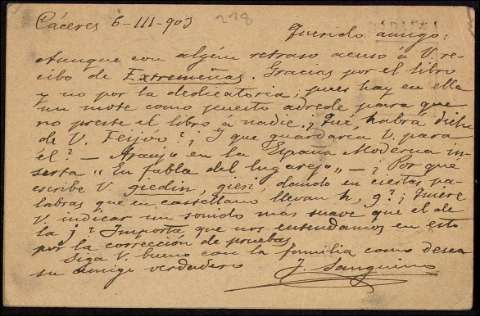 Cáceres 6-III-903
228
Querido amigo:
Aunque con algún retraso acuso á V. re-
cibo de Extremeñas. Gracias por el libro
y no por la dedicatoria; pues hay en ella
un mote como puesto adrede para que
no preste el libro á nadie. ¿Qué habrá dicho
de V. Feijóo? ¿Y que guardarán V. para
él? - Araujo en la España Moderna in-
serta "La fabla del lugarejo" - ¿Por qué
escribe V. giedin, giesi dando en ciertas pa-
labras que en castellano llevan h, g? ¿Quiere
V. indicar un sonido mas suave que el de
la j? Importa que nos entendamos en esto
por la corrección de pruebas.
Siga V. bueno con la familia como desea
su amigo verdadero J. Sanguino